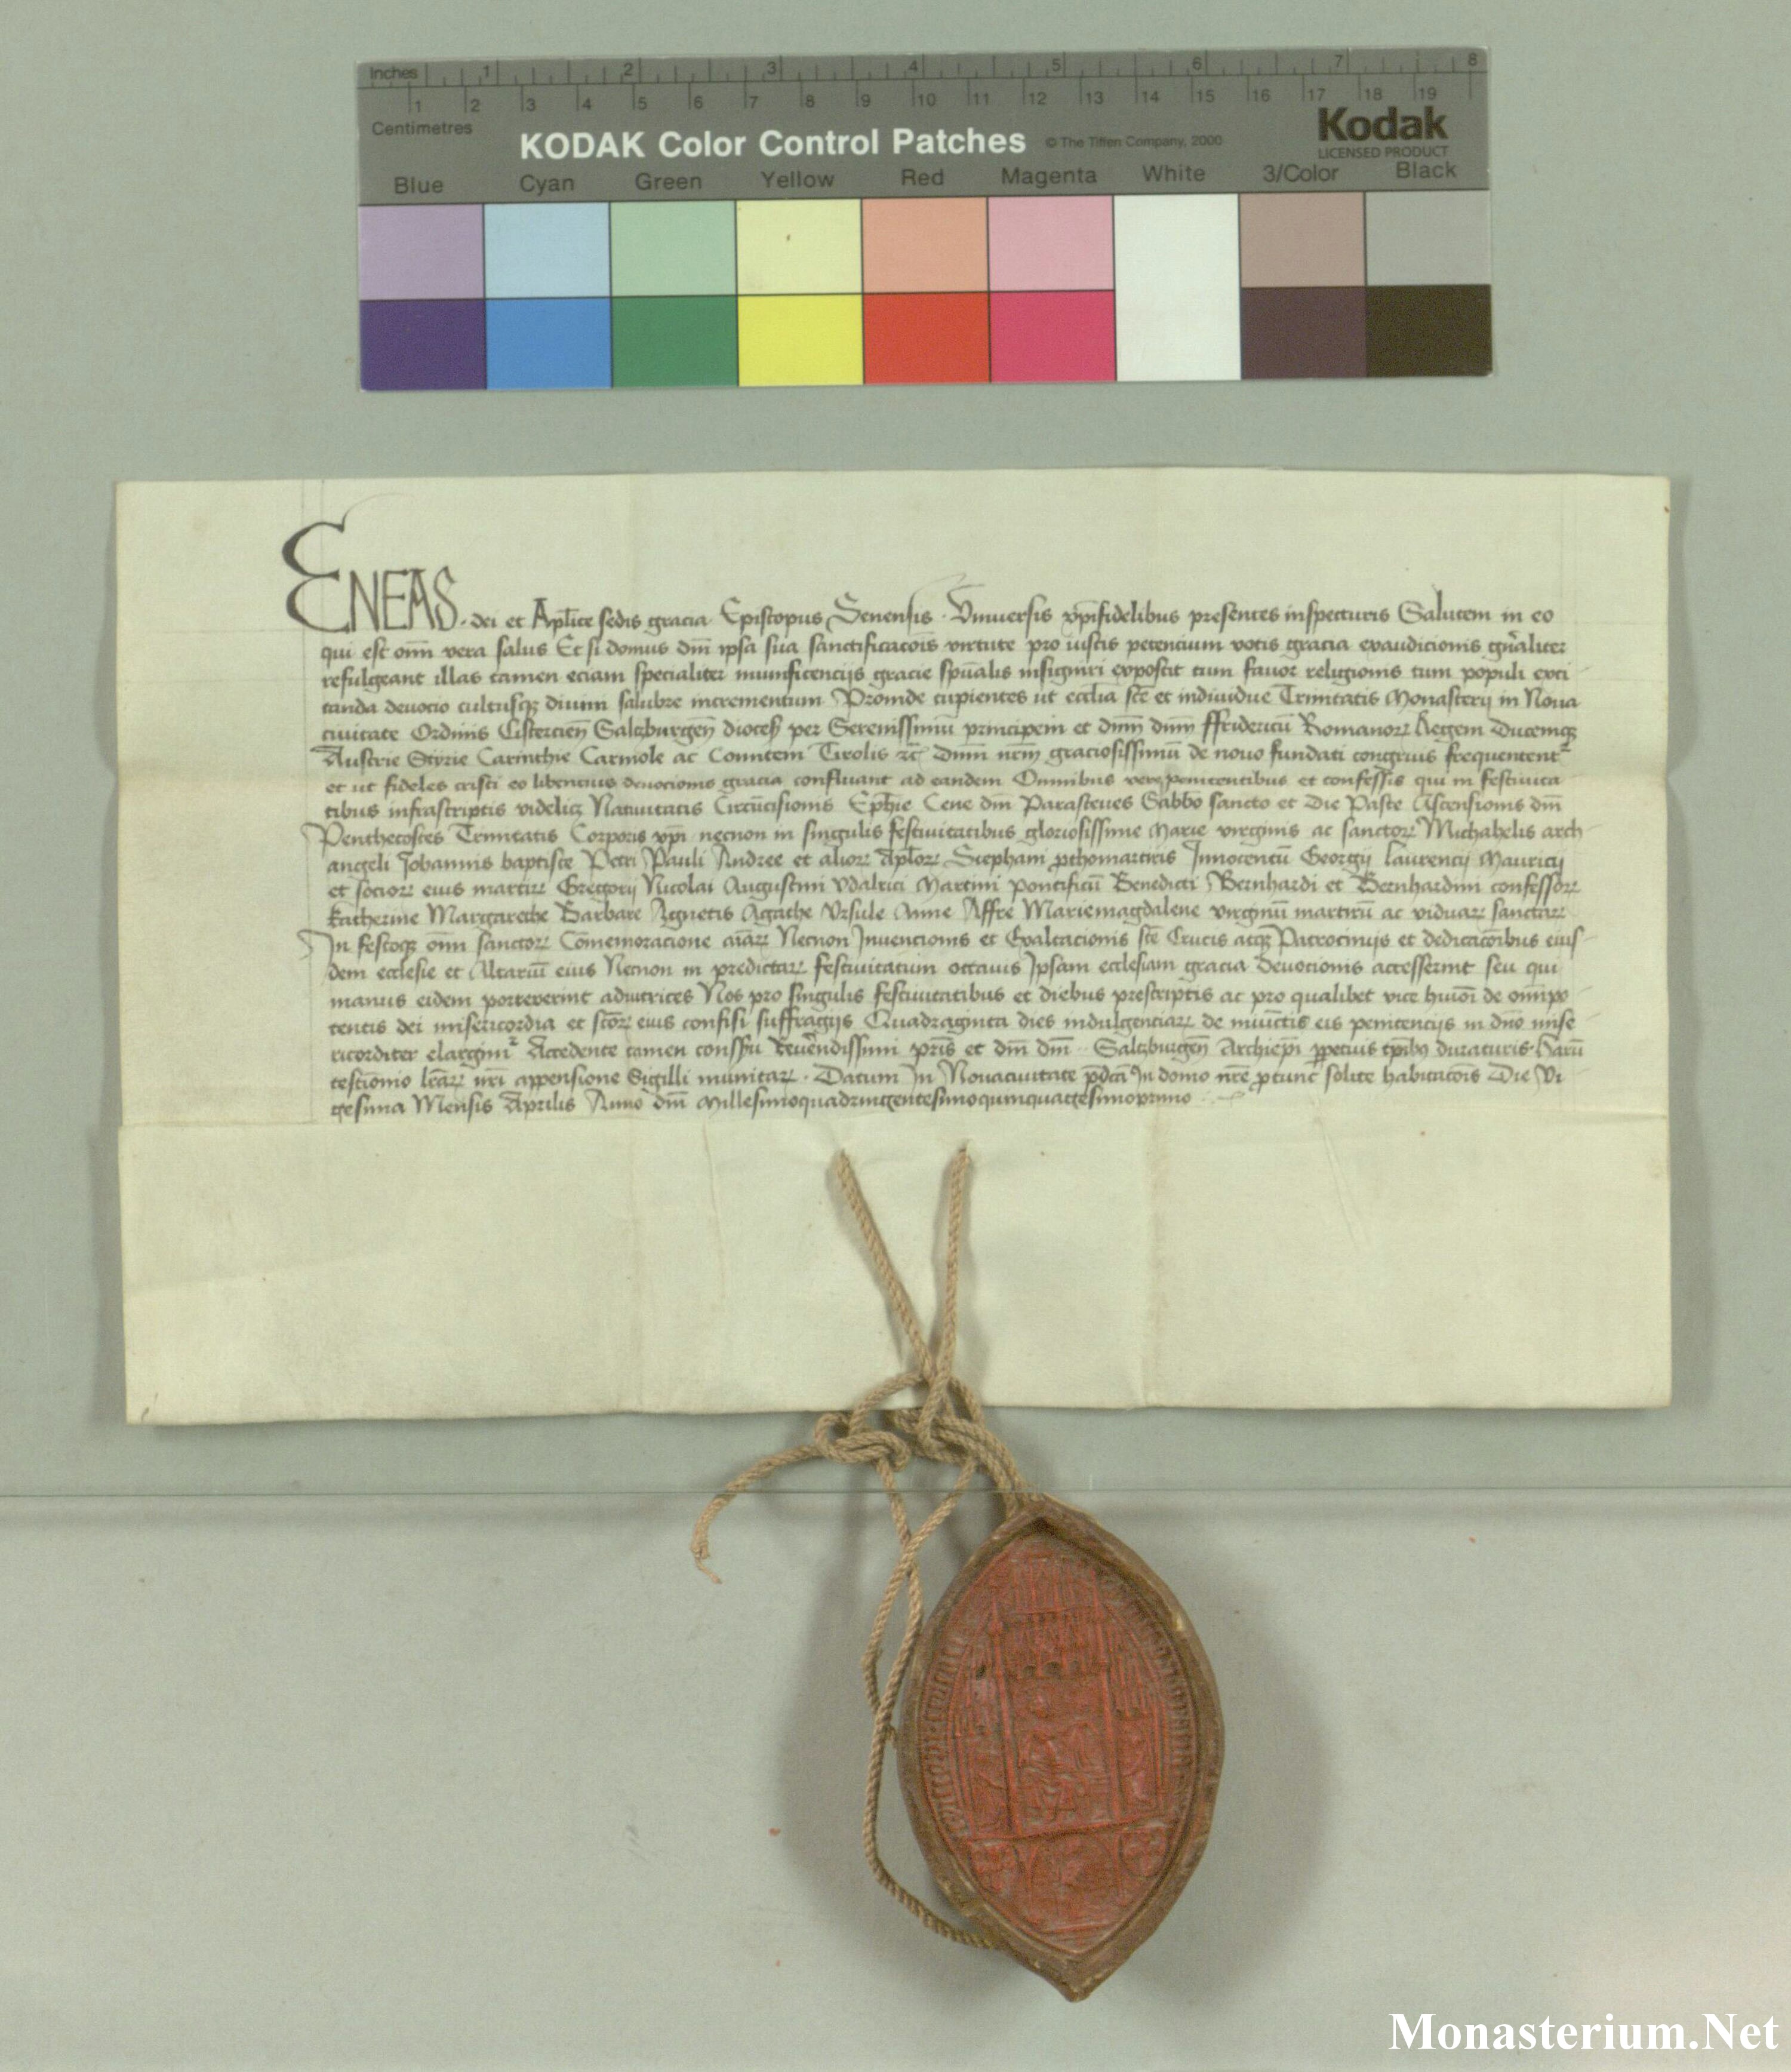 Inches 1 2 3 4 5 6 7 8
1 2 3 4 5 6 7 8 9 10 11 12 13 14 15 16 17 18 19
Centimetres
KODAK Color Control Patches © The Tiffen Company, 2000 Kodak
LICENSED PRODUCT
Blue Cyan Green Yellow Red Magenta White 3/Color Black
ENEAS. dei et Aplice sedis gracia Episcopus Senensis. Vniuersis xpifidelibus presentes inspecturis Salutem in eo
qui est oim vera salus Et si domus dni ipsa sua sanctificacois virtute pro iustis petencium votis gracia exaudicionis gnraliter
refulgeant illas tamen eciam specialiter munificencijs gracie spualis insigniri exposcit tum fauor religionis tum populi exci
tanda deuocio cultusq diuini salubre incrementum Proinde cupientes ut ecclia scte et indiuidue Trinitatis Monasterij in Noua
ciuitate Ordinis Cistercien Salczburgen dioces per Serenissimu principem et dnm dnm ffridericu Romanor Regem Ducemq
Austrie Stirie Carinthie Carniole ac Comitem Tirolis etc Dnm nrm graciosissimu de nouo fundati congruis frequentent
et ut fideles cristi eo libencius deuocionis gracia confluant ad eandem Omnibus vere penitentibus et confessis qui in festiuita
tibus infrascriptis videlicz Natiuitatis Circucisionis Ephie Cene dni Parasceues Sabbo sancto et Die Pasce Ascensionis dni
Penthecostes Trinitatis Corporis xpi necnon in singulis festiuitatibus gloriosissime Marie virginis ac sanctor Michahelis arch
angeli Johannis baptiste Petri Pauli Andree et alior Aplor Stephani pthomartiris Innocentu Georgij Laurencij Mauricij
et socior eius martir Gregorij Nicolai Augustini Vdalrici Martini pontificu Benedicti Bernhardi et Bernhardini confessor
Katherine Margarethe Barbare Agnetis Agathe Vrsule Anne Affre Mariemagdalene virginu martiru ac viduar sanctar
In festoq oim sanctor Comemoracione aiar Necnon Inuencionis et Exaltacionis scte Crucis atq Patrocinijs et dedicacoibus eius
dem ecclesie et Altariu eius Necnon in predictar festiuitatum octauis Ipsam ecclesiam gracia deuocionis accesserint seu qui
manus eidem porrexerint adiutrices Nos pro singulis festiuitatibus et diebus prescriptis ac pro qualibet vice huiusmodi de omipo
tentis dei misericordia et sctor eius confisi suffragijs Quadraginta dies indulgenciar de iniunctis eis penitencijs in dno mise
ricorditer elargimur Accedente tamen consensu Reuerendissimi pris et dni dni Salczburgen Archiepi perpetuis tpibus duraturis. Haru
testimonio lrar nri appensione Sigilli munitar. Datum In Nouaciuitate pdcta In domo nre ptunc solite habitacois Die Vi
gesima Mensis Aprilis Anno dni Millesimoquadringentesimoquinquagesimoprimo
Monasterium.Net